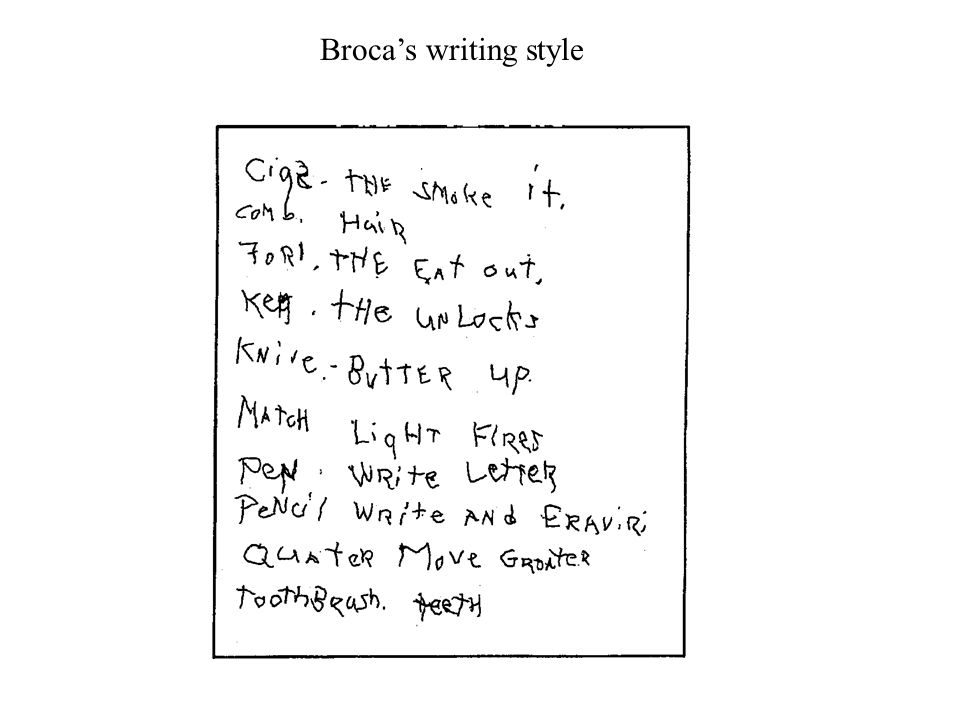 Broca’s writing style
Cig - THE SMOKE it.
COMb. HAiR
FORl. THE EAT out.
KEY. THE UNLOCKS
KNive.- BUTTER UP.
MATCH LigHT FIRES
PeN. WRite LetteR
PeNcil WRite AND ERAViRi
QUATER MOVe GROATER
toothBRush. teetH